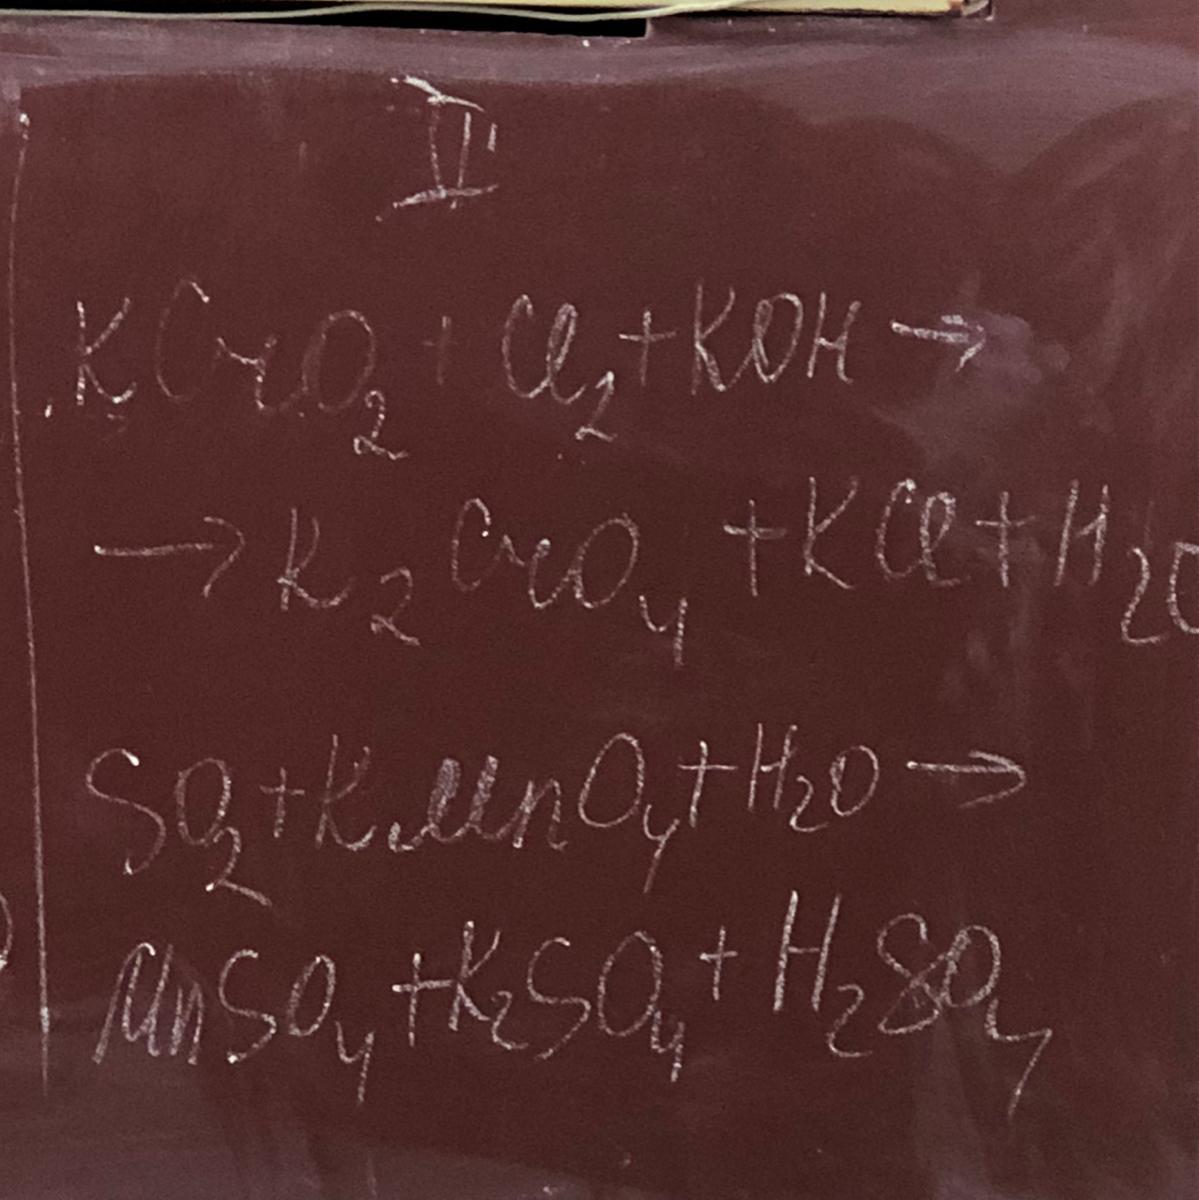 II
KCrO₂ + Cl₂ + KOH →
→ K₂CrO₄ + KCl + H₂O
SO₂ + KMnO₄ + H₂O →
MnSO₄ + K₂SO₄ + H₂SO₄